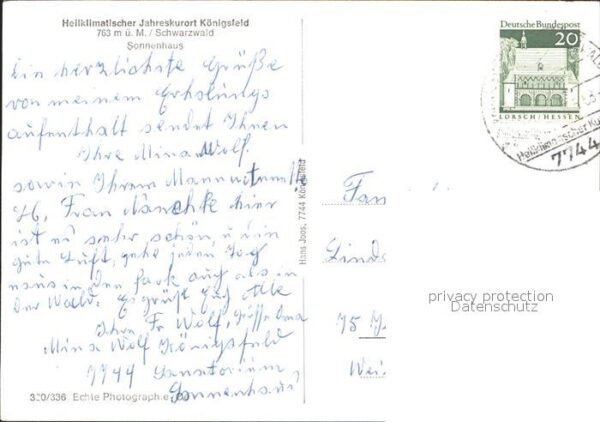 Heilklimatischer Jahreskurort Königsfeld
763 m ü. M. / Schwarzwald
Sonnenhaus
Ein herzlichste Grüße
von meinem Erholungs
aufenthalt sendet Ihnen
Ihre Mina Wolf.
sowie Ihrem Mann
Frau hier
ist es sehr schön, u. die
gute Luft, gehe jeden Tag
naus in den Park auch als in
der Wald. Es grüßt Euch Alle
Ihre Fr Wolf, Grüße Oma
Mina Wolf Königsfeld
7744 Sanatorium
Sonnenhaus
330/336 Echte Photographie
Hans Joos, 7744 Königsfeld
Deutsche Bundespost
20
LORSCH / HESSEN
Heilklimatischer Ku
7744
Fam
Linde
75
privacy protection
Datenschutz